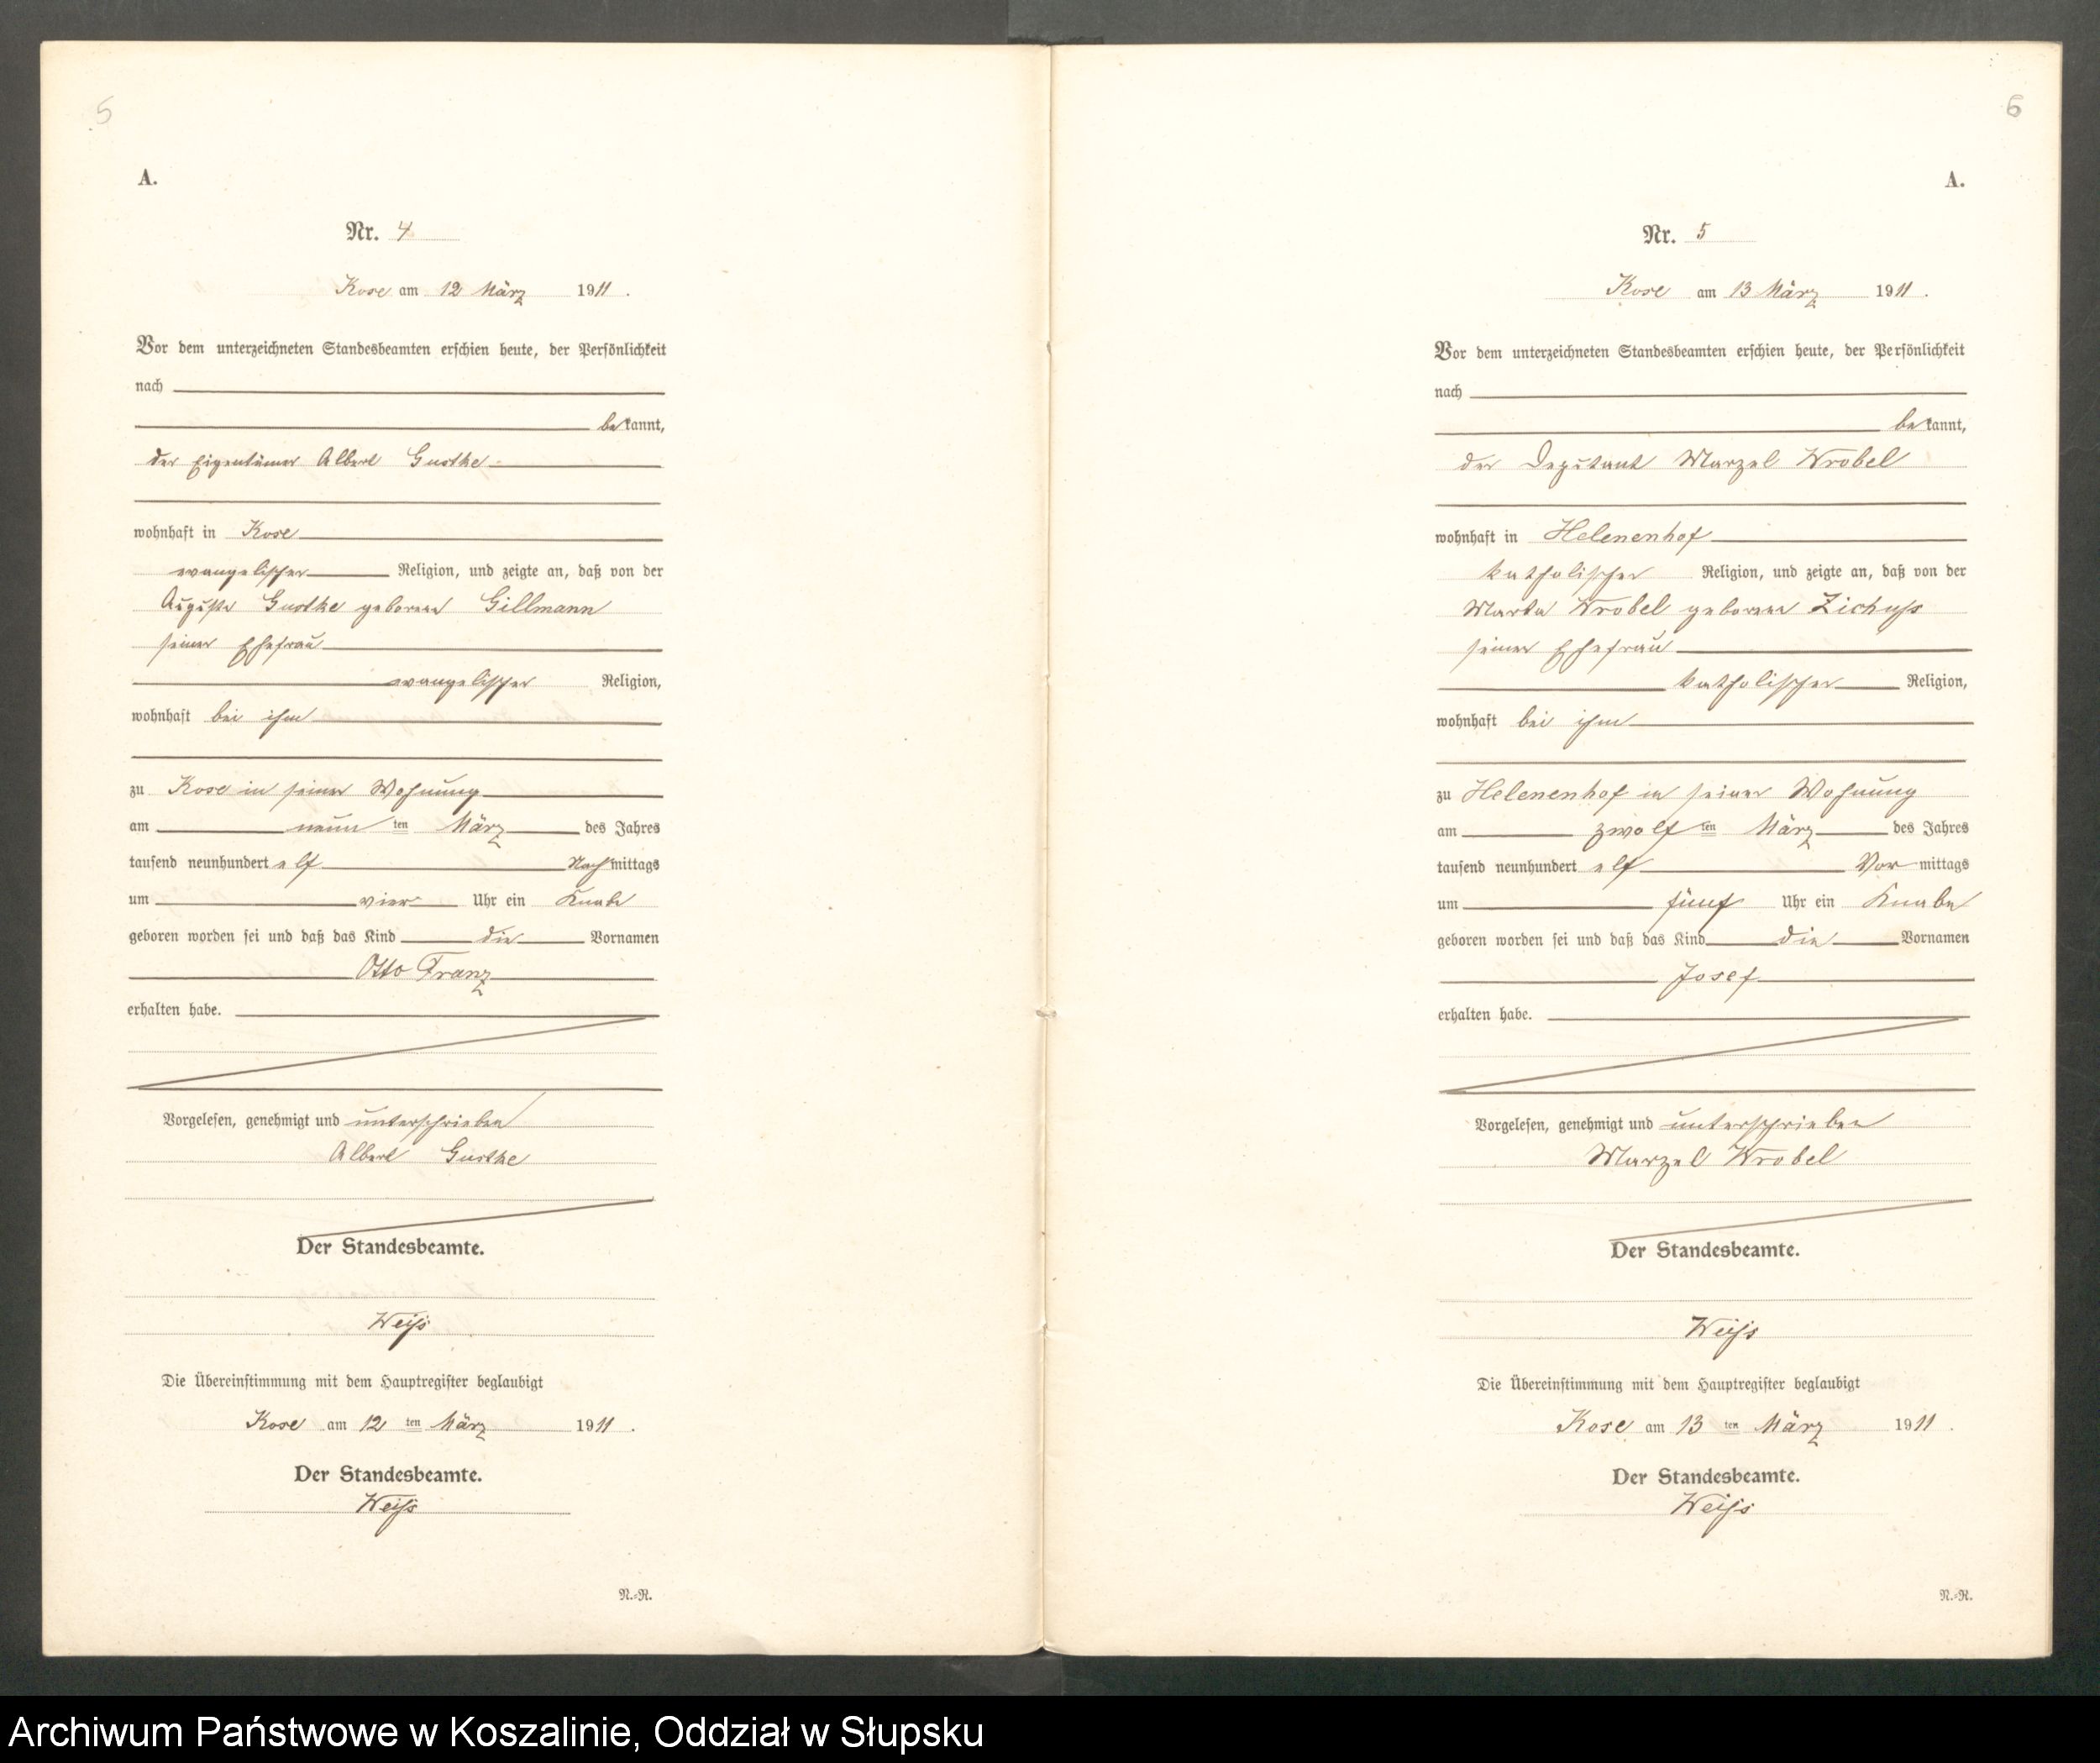 5
A.
Nr. 4
Kose am 12 März 1911.
Vor dem unterzeichneten Standesbeamten erschien heute, der Persönlichkeit
nach
bekannt,
der Eigentümer Albert Gustke
wohnhaft in Kose
evangelischer Religion, und zeigte an, daß von der
Auguste Gustke geborene Gillmann
seiner Ehefrau
evangelischer Religion,
wohnhaft bei ihm
zu Kose in seiner Wohnung
am neun ten März des Jahres
tausend neunhundert elf Nachmittags
um vier Uhr ein Knabe
geboren worden sei und daß das Kind die Vornamen
Otto Franz
erhalten habe.
Vorgelesen, genehmigt und unterschrieben
Albert Gustke
Der Standesbeamte.
Weiss
Die Übereinstimmung mit dem Hauptregister beglaubigt
Kose am 12 ten März 1911.
Der Standesbeamte.
Weiss
N.=R.
6
A.
Nr. 5
Kose am 13 März 1911.
Vor dem unterzeichneten Standesbeamten erschien heute, der Persönlichkeit
nach
bekannt,
der Deputant Marzel Wrobel
wohnhaft in Helenenhof
katholischer Religion, und zeigte an, daß von der
Marta Wrobel geborene Zichuss
seiner Ehefrau
katholischer Religion,
wohnhaft bei ihm
zu Helenenhof in seiner Wohnung
am zwölf ten März des Jahres
tausend neunhundert elf Vormittags
um fünf Uhr ein Knabe
geboren worden sei und daß das Kind die Vornamen
Josef
erhalten habe.
Vorgelesen, genehmigt und unterschrieben
Marzel Wrobel
Der Standesbeamte.
Weiss
Die Übereinstimmung mit dem Hauptregister beglaubigt
Kose am 13 ten März 1911.
Der Standesbeamte.
Weiss
N.=R.
Archiwum Państwowe w Koszalinie, Oddział w Słupsku